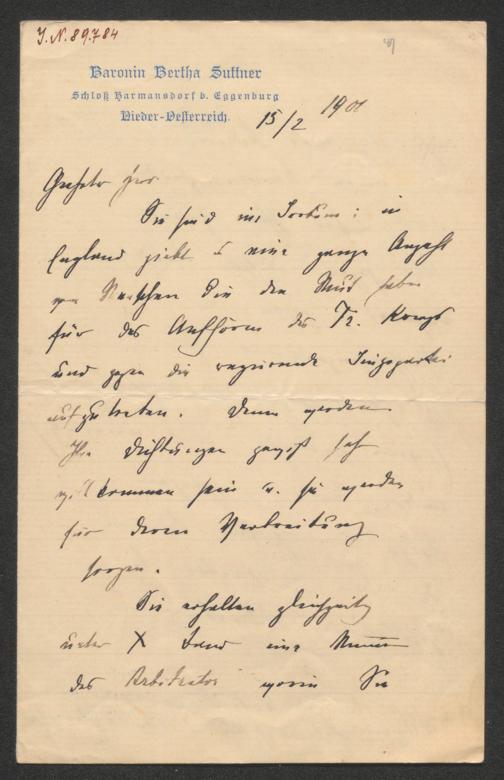 J. N. 89.784
Baronin Bertha Suttner
Schloß Harmansdorf b. Eggenburg
Nieder-Oesterreich.
15/2 1901
Geehrter Herr
Sie sind im Irrtum: in
England giebt es eine ganze Anzahl
von Menschen die den Mut haben
für das Aufhören des Tr. Kriegs
und gegen die regierende Jingopartei
aufzutreten. Denen werden
Ihre Dichtungen gewiß sehr
willkommen sein u. sie werden
für deren Verbreitung
sorgen.
Sie erhalten gleichzeitig
unter X Band eine Nummer
des Arbitrator worin Sie